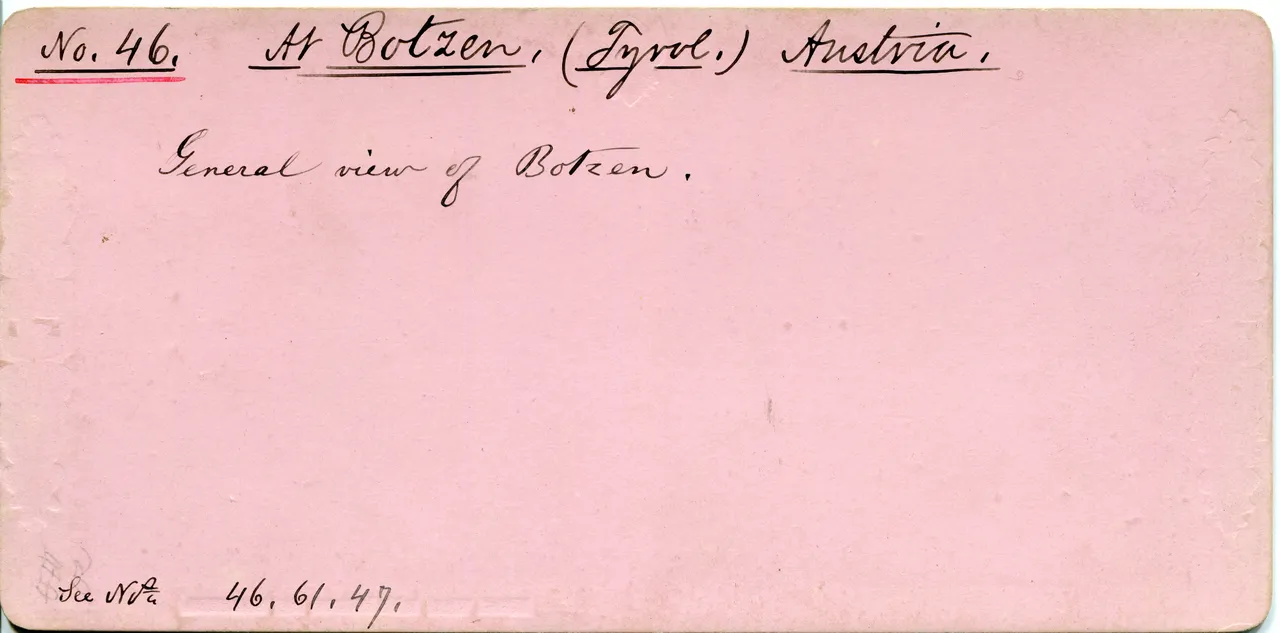 No. 46. At Botzen, (Tyrol.) Austria.
General view of Botzen.
See Nos 46. 61. 47.